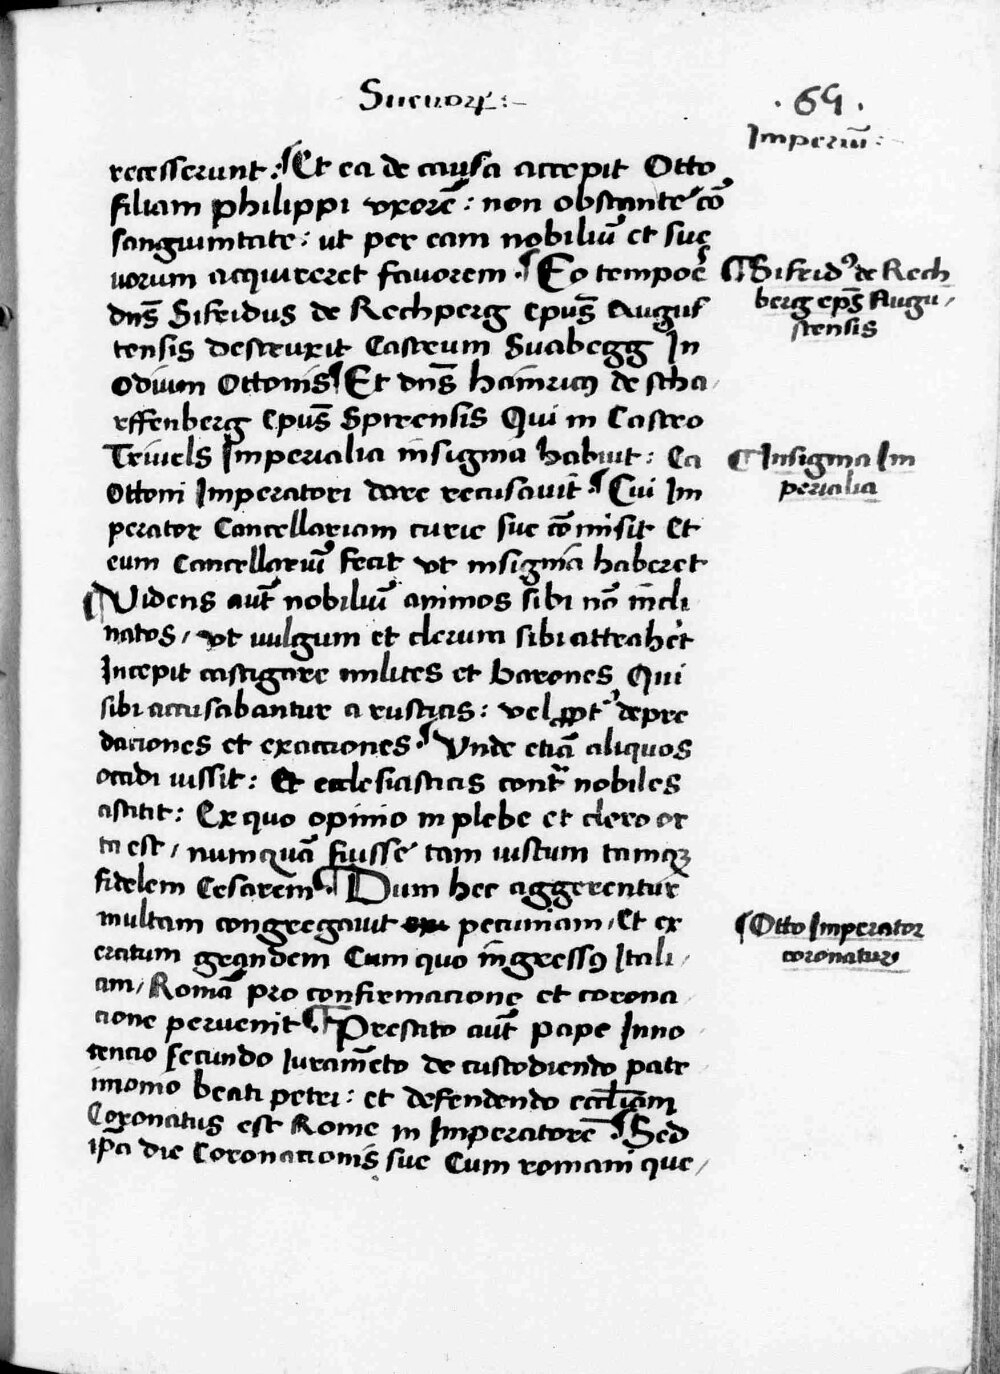 Sueuorꝝ:-
.69.
Imperiū:
recesserunt: ¶Et ea de causa accepit Otto
filiam philippi vxorē: non obstante cō
sanguinitate: ut per eam nobiliū et sue
uorum acquireret fauorem. ¶Eo tempoꝛe
dn̄s Sifridus de Rechperg ep̄us Augus
tensis destruxit Castrum Suabegg In
odium Ottonis ¶Et dn̄s hainricꝰ de scha,
rffenberg Ep̄us Spirensis Qui in Castro
Triuels Imperialia insignia habuit: Ea
Ottoni Imperatori dare recusauit. ¶Cui Im
perator Cancellariam curie sue cōmisit Et
eum Cancellariū fecit vt insignia haberet
¶Videns aut̄ nobiliū animos sibi nō incli
natos, vt uulgum et clerum sibi attraheret
Incepit castigare milites et barones Qui
sibi accusabantur a rusticis: vel ꝓpt̓ depre
daciones et exacciones. ¶Vnde etiā aliquos
occidi iussit: Et ecclesiasticis cont̓ nobiles
astitit: Ex quo opinio in plebe et clero or
ta est, numquā fuisse tam iustum tamqꝫ
fidelem Cesarem. ¶Dum hec aggerentur
multam congregauit pecuniam, Et ex
ercitum grandem Cum quo ingressꝰ Itali,
am, Romā pro confirmacione et corona
cione peruenit. ¶Prestito aut̄ pape Inno
cencio secundo Iuramēto de custodiendo patr
imonio beati petri: et defendendo eccl̄iam
Coronatus est Rome in Imperatorē ¶Sed
ip̄a die Coronacionis sue Cum romani que,
¶Sifridꝰ de Rech
berg ep̄s Augu,
stensis
¶Insignia Im
perialia
¶Otto Imperator
coronatur